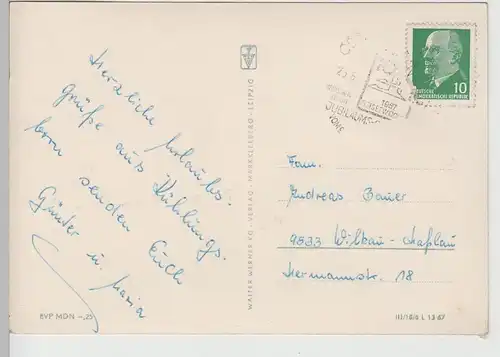 Herzliche Urlaubs-
grüße aus Kühlungs-
born senden Euch
Günter u. Maria
EVP MDN -,25
WALTER WERNER KG · VERLAG · MARKKLEEBERG · LEIPZIG
1967
10
DEUTSCHE
DEMOKRATISCHE REPUBLIK
Fam.
Andreas Bauer
Wilkau-Haßlau
Hermannstr. 18
III/18/6 L 13 67